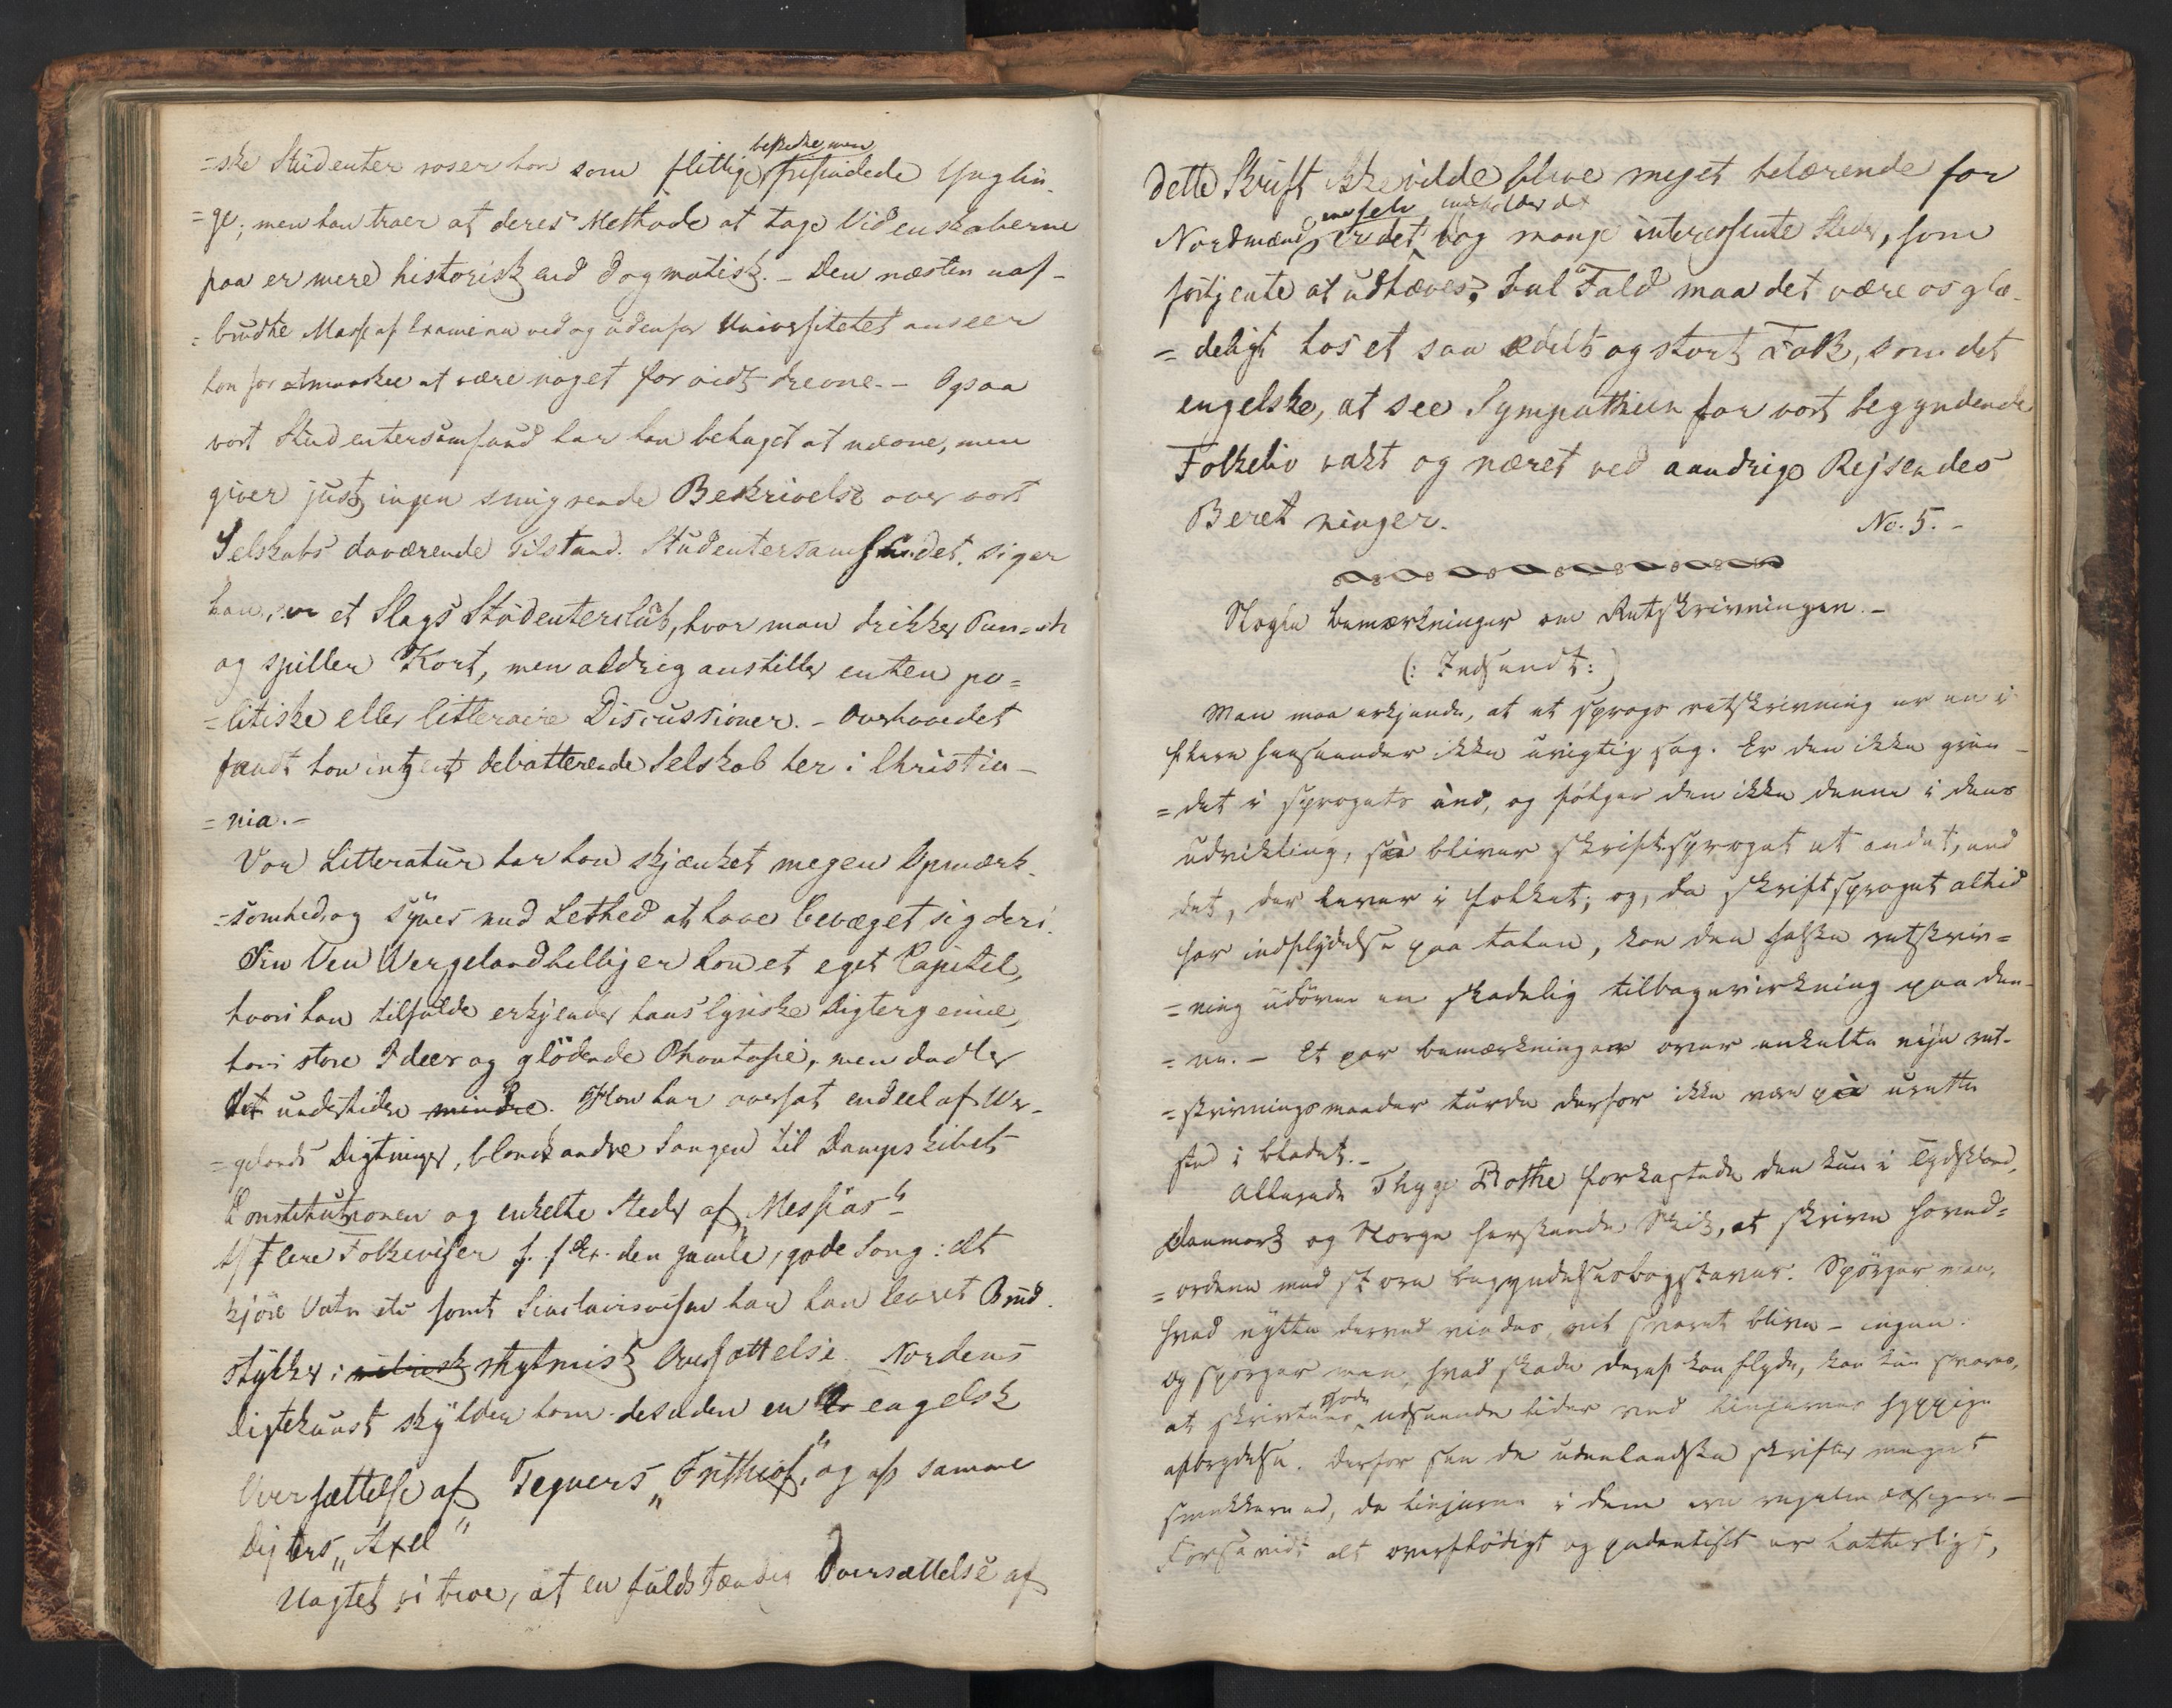 =ske Studenter roser han som flittige, beskedne men frisindede Ynglin-
=ge; men han troer at deres Methode at tage Videnskaberne
paa er mere historisk end dogmatisk. – Den næsten uaf-
=brudte Masse af Examina ved og udenfor Universitetet anseer
han for at maaskee at være noget for vidt drevne. – Ogsaa
vort Studentersamfund har han behaget at nævne, men
giver just ingen smigrende Beskrivelse over vort
Selskabs daværende Tilstand. Studentersamfundet, siger
han, er et Slags Studenterclub, hvor man drikker Punsch
og spiller Kort, men aldrig anstiller enten po=
=litiske eller litteraire Discussioner. – Overhovedet
fandt han intet debatterende Selskab her i Christia-
=nia. –
Vor Litteratur har han skjænket megen Opmærk-
=somhed, og synes med Lethed at have bevæget sig deri.
Sin Ven Wergeland helliger han et eget Capitel,
hvori han tilfulde erkjender hans lyriske Digtergenie,
hans store Ideer og glödende Phantasie, men dadler
det undertiden mindre. Han har oversat endeel af Wer-
=gelands Digtninger, blandt andre Sangen til Dampskibet
Constitutionen og enkelte Steder af „Messias“
Af flere Folkeviser f. Ex. den gamle, gode Sang: At
kjöre Vatn etc samt Sinclairsvisen har han leveret Brud-
stykker i metrisk rhytmisk Oversættelse. Nordens
Digtekunst skylder ham desuden en engelsk
Oversættelse af Tegners „Frithiof,“ og af samme
Digters „Axel“
Uagtet vi troe, at en fuldstændig Oversættelse af
dette Skrift ikke vilde blive meget belærende for
Nordmænd, er det indeholder det dog mange interessente Steder, som
fortjente at udhæves; I al Fald maa det være os glæ-
=deligt hos et saa ædelt og stort Folk, som det
engelske, at see Sympathien for vort begyndende
Folkeliv vakt og næret ved aandrige Rejsendes
Beretninger. No. 5. –
Nogle bemærkninger om Retskrivningen. –
(: Indsendt :)
Man maa erkjende, at et sprogs retskrivning er en i
flere henseender ikke uvigtig sag. Er den ikke grun-
=det i sprogets ånd, og fölger den ikke denne i dens
udvikling, så bliver skriftsproget et andet, end
det, der lever i folket; og, da skriftsproget altid
har indflydelse paa talen, kan den falske retskriv=
=ning udöve en skadelig tilbagevirkning paa den-
=ne. – Et par bemærkninger over enkelte nye ret-
=skrivningsmaader turde derfor ikke være på urette
sted i bladet. –
Allerede Thyge Rothe forkastede den kun i Tydskland,
Danmark og Norge herskende Skik, at skrive hoved=
=ordene med store begyndelsesbogstaver. Spörger man,
hvad nytte derved vindes, vil svaret blive – ingen.
Og spörger man, hvad skade deraf kan flyde, kan kun svares,
at skriftens gode udseende lider ved linjernes hyppige
afbrydelse. Derfor see de udenlandske skrifter meget
smukkere ud, da linjerne i dem ere regelmæssigere –
Forsåvidt alt overflödigt og pedantisk er latterligt,